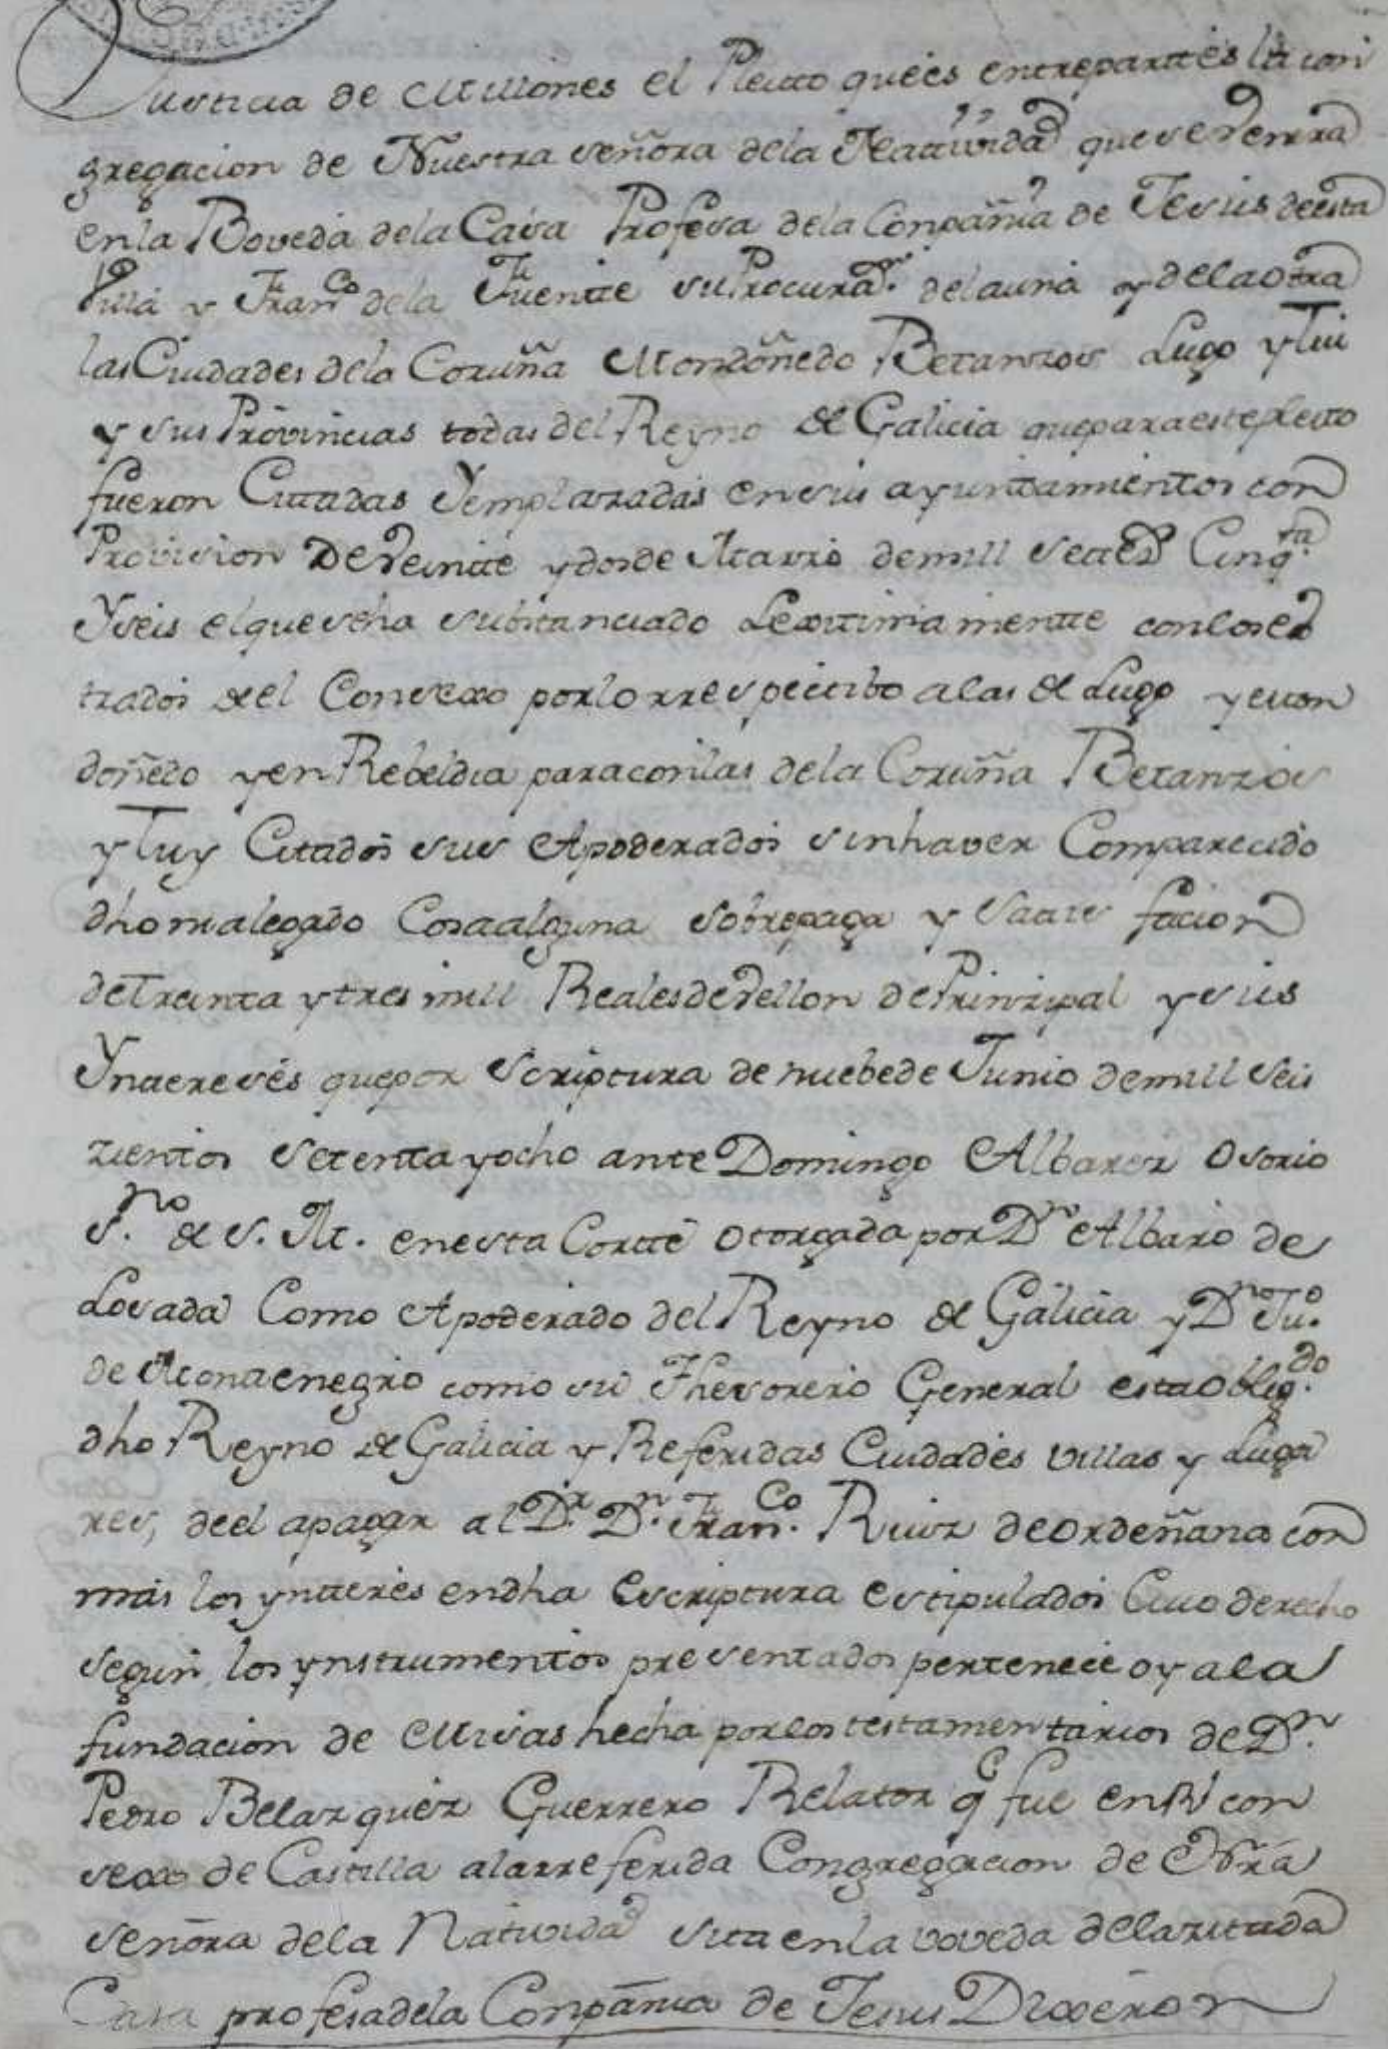 Justicia de Millones el Pleito quees entrepartes la con
gregacion de Nuestra señora dela Natividad que se venera
enla Boveda dela Casa Profesa dela Conpañia de Jesus deesta
Villa y Fran.co dela Fuente su Procura.r delauna y delaotra
las Ciudades dela Coruña Mondoñedo Betanzos Lugo y Tui
y sus Provincias todas del Reyno de Galicia queparaestepleito
fueron Citadas Yemplazadas ensus ayuntamientos con
Provision De Veintte ydosde Marzo demill setts Cinq.ta
Yseis elqueseha substanciado Lexitimamentte conlosex
trados del Consexo porlorrespectibo alas de Lugo y Mon
doñedo yen Rebeldia paraconlas dela Coruña Betanzos
y Tuy Citados sus Apoderados sinhaver Comparecido
dho nialegado Cosaalguna sobrepaga y Sattisfacion
deTreinta ytres mill Realesdevellon dePrinzipal ysus
Ynttereses quepor Scriptura de nuebede Junio demill seis
zientos setenta yocho ante Domingo Albarez Osorio
S.no de S. M. enesta Cortte otorgada por Dn Albaro de
Losada Como Apoderado del Reyno de Galicia y Dn Ju.o
de Montenegro como su Thesorero General estaoblig.do
dho Reyno de Galicia y Referidas Ciudades villas y Luga
res, deel apagar al D.r D.n Fran.co Ruiz deordeñana con
mas los ynteres endha Escriptura estipulados Cuio derecho
segun los ynstrumentos presentados pertenece oy ala
fundacion de Misas hecha porlostestamentarios de D.n
Pedro Belazquez Guerrero Relator q fue enel con
sexo de Castilla alarreferida Congregacion de Nra
señora dela Natividad sita enla voveda delazitada
Casa profesadela Conpañia de Jesus Dixeron